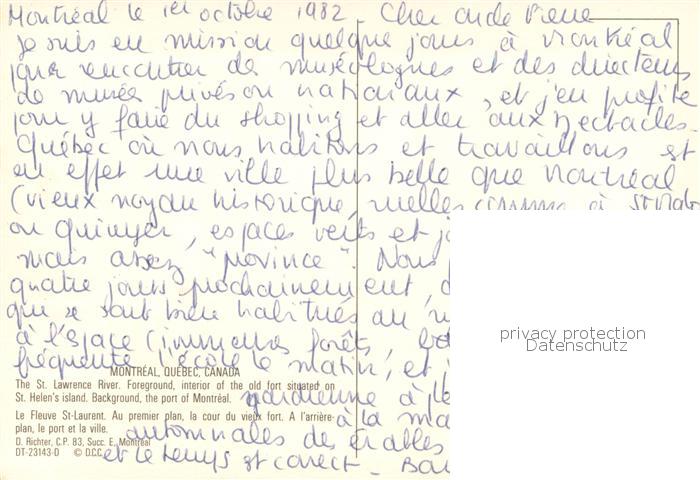 Montréal le 1er octobre 1982 Cher oncle Pierre
Je suis en mission quelque jours à Montréal
pour rencontrer de muséologues et des directeurs
de musée privés ou nationaux, et j'en profite
pour y faire du shopping et aller aux spectacles.
Québec où nous habitons et travaillons est
en effet une ville plus belle que Montréal
(vieux noyau historique, ruelles comme à St Malo
ou Quimper, espaces verts et
mais assez "province". Nous
quatre jours prochainement,
qui se sont bien habitués au
à l'espace (immenses forêts,
fréquente l'école le matin, et
MONTRÉAL, QUÉBEC, CANADA
The St. Lawrence River. Foreground, interior of the old fort situated on
St. Helen's island. Background, the port of Montréal.
gardienne à
Le Fleuve St-Laurent. Au premier plan, la cour du vieux fort. A l'arrière-
plan, le port et la ville.
à la
D. Richter, C.P. 83, Succ. E, Montréal
automnales des érables
DT-23143-D © D.C.C.
et le temps est correct -
privacy protection
Datenschutz